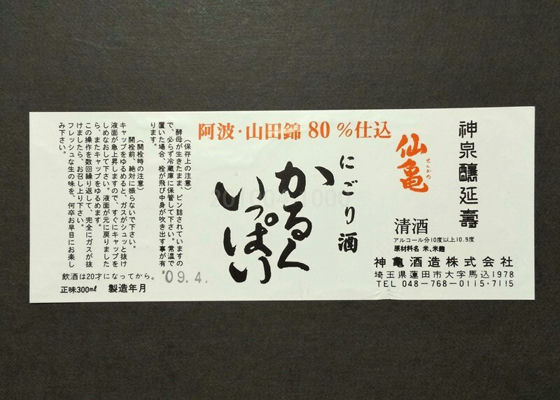 神泉醸延壽
仙亀
せんかめ
清酒
アルコール分10度以上10.9度
原材料名 米、米麹
神亀酒造株式会社
埼玉県蓮田市大字馬込1978
TEL 048-768-0115・7115
阿波・山田錦 80%仕込
にごり酒
かるく
いっぱい
（保存上の注意）
酵母が生きたまま、ビン詰されていますの
で、必らず冷蔵庫に保管して下さい。常温で
置いた場合、栓が飛び中身が吹き出す事が有
ります。
（開栓時の注意）
開栓前、絶対に揺らないで下さい。
キャップをゆるめると、ガスがシュッと抜け
液面が急上昇しますので、すぐにキャップを
しめなおして下さい。液面が元に戻りました
ら、またキャップをゆるめます。
この操作を数回繰り返して、完全にガスが抜
けましたら、お召し上り下さい。
フレッシュな生の味を、何卒お早目にお楽し
み下さい。
飲酒は20才になってから。
正味300ml
製造年月
'09.4.